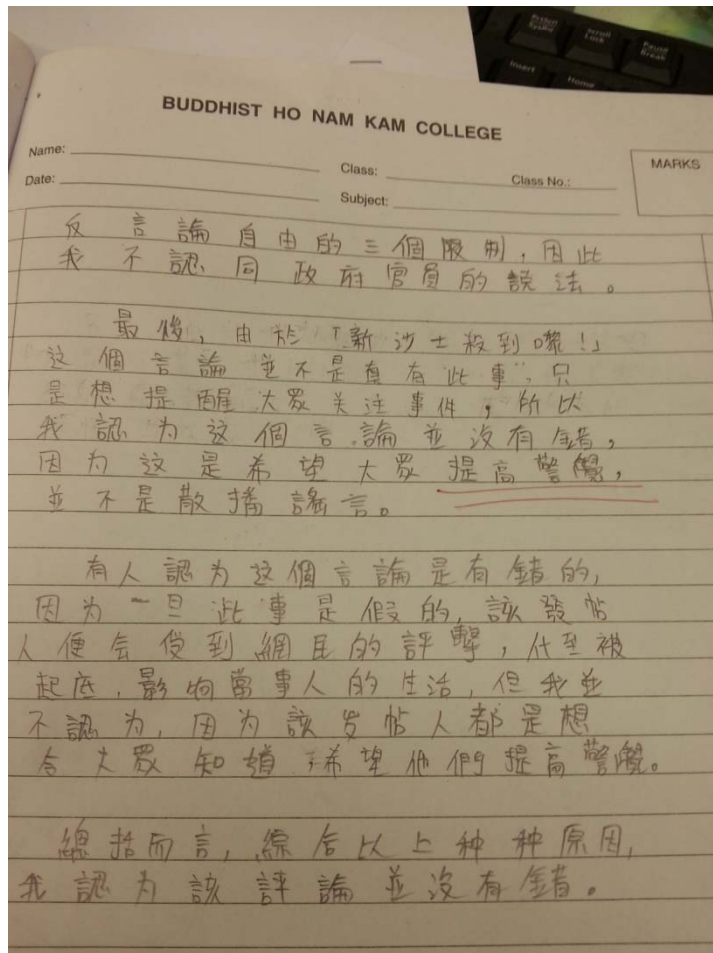 Prtscn
SysRq
Scroll
Lock
Pause
Break
Insert
Home
BUDDHIST HO NAM KAM COLLEGE
Name:
Class:
Class No.:
MARKS
Date:
Subject:
反言論自由的三個限制，因此
我不認同政府官員的說法。
最後，由於「新沙士殺到嚟！」
这個言論並不是真有此事，只
是想提醒大眾关注事件，所以
我認为这個言論並沒有錯，
因为这是希望大眾提高警覺，
並不是散播謠言。
有人認为这個言論是有錯的，
因为一旦此事是假的，該發帖
人便会受到網民的評擊，什至被
起底，影响當事人的生活，但我並
不認为，因为該发帖人都是想
令大眾知道，希望他們提高警覺。
總括而言，綜合以上种种原因，
我認为該評論並沒有錯。